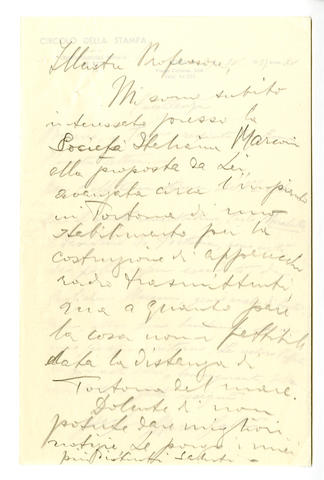 CIRCOLO DELLA STAMPA
Illustre Professore,
Mi sono subito
interessato presso la
Società Italiana Marconi
alla proposta da Lei
avanzata circa l'impianto
in Tortona di uno
stabilimento per la
costruzione di apparecchi
radio trasmittenti
ma a quanto pare
la cosa non è fattibile
data la distanza di
Tortona del mare.
Dolente di non
poterle dare migliori
notizie Le porgo i miei
più distinti saluti